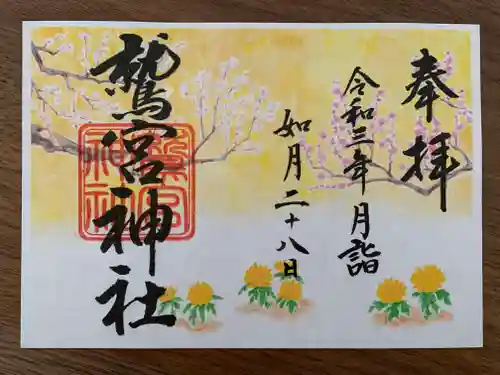 奉拝
令和三年月詣
如月二十八日
鷲宮神社